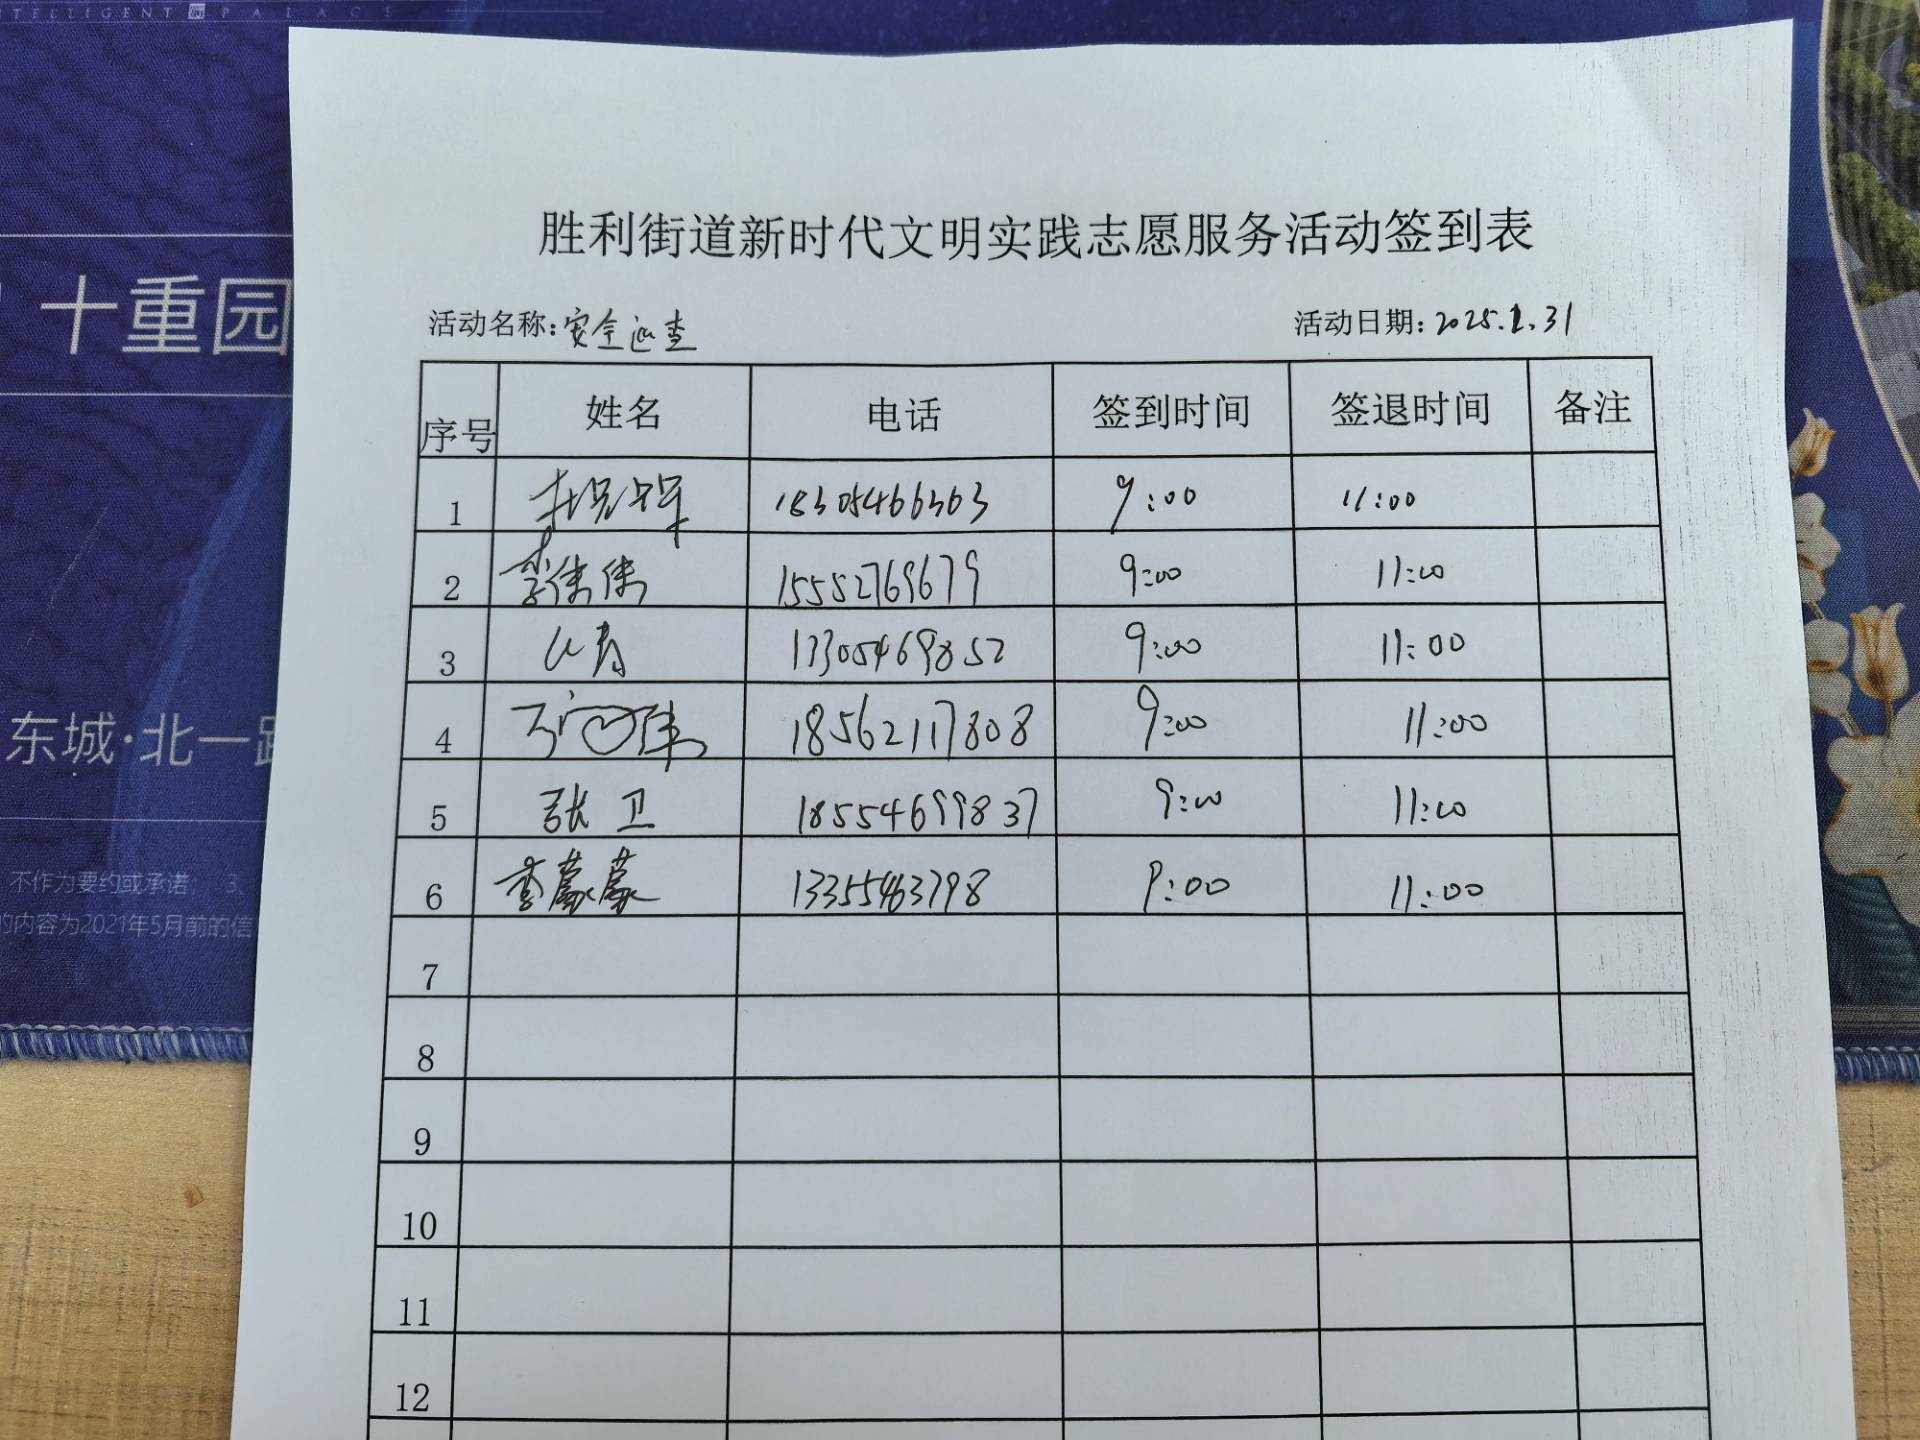 INTELLIGENT PALACE
十重园
东城·北一路
不作为要约或承诺； 3、
的内容为2021年5月前的信
胜利街道新时代文明实践志愿服务活动签到表
活动名称：安全巡查 活动日期：2025.1.31
序号 姓名 电话 签到时间 签退时间 备注
1 18305466363 9:00 11:00
2 李倩倩 15552769679 9:00 11:00
3 13305469852 9:00 11:00
4 18562117808 9:00 11:00
5 张卫 18554699837 9:00 11:00
6 李蒙蒙 13355463798 9:00 11:00
7
8
9
10
11
12